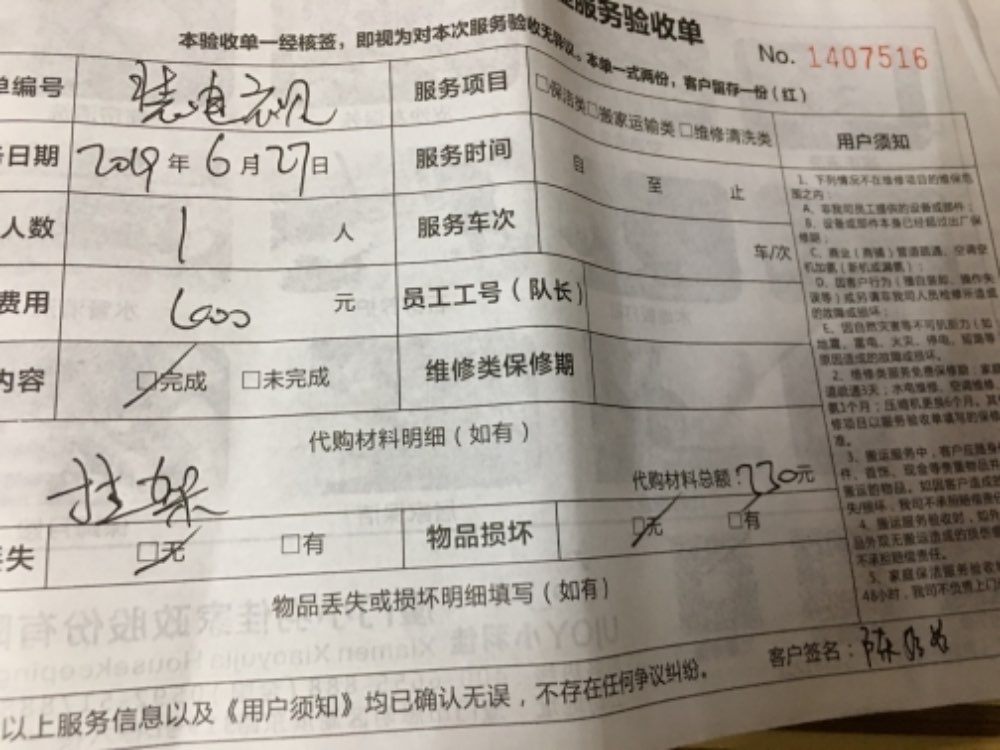 服务验收单
本验收单一经核签，即视为对本次服务验收无异议。本单一式两份，客户留存一份（红）
No. 1407516
单编号 装电视 服务项目 □保洁类□搬家运输类 □维修清洗类 用户须知
日期 2019年6月27日 服务时间 自 至 止
人数 1 人 服务车次 车/次
费用 600 元 员工工号（队长）
内容 □完成 □未完成 维修类保修期
代购材料明细（如有）
挂架 代购材料总额：330元
丢失 □无 □有 物品损坏 □无 □有
物品丢失或损坏明细填写（如有）
以上服务信息以及《用户须知》均已确认无误，不存在任何争议纠纷。
客户签名：陈
1、下列情况不在维修项目的维保范
围之内：
A、非我司员工提供的设备或部件；
B、设备或部件本身已经超过出厂保
修期；
C、商业（商铺）管道疏通、空调空
机加氨（新机或漏氨）；
D、因客户行为（擅自装卸、操作失
误等）或另请非我司人员检修所造成
的故障或损坏；
E、因自然灾害等不可抗能力（如
地震、雷电、火灾、停电、短路等
原因造成的故障或损坏。
2、维修类服务免费保修期：家庭
道疏通3天；水电维修、空调维修、
氨1个月；压缩机更换6个月。其
修项目以服务验收单填写的保修
准。
3、搬运服务中，客户应随身
件、首饰、现金等贵重物品并
搬运的物品。如因客户造成
失/损坏，我司不承担赔偿责
4、搬运服务验收时，如外
品外观无搬运造成的损伤
不承担赔偿责任。
5、家庭保洁服务验收
48小时，我司不负责上门